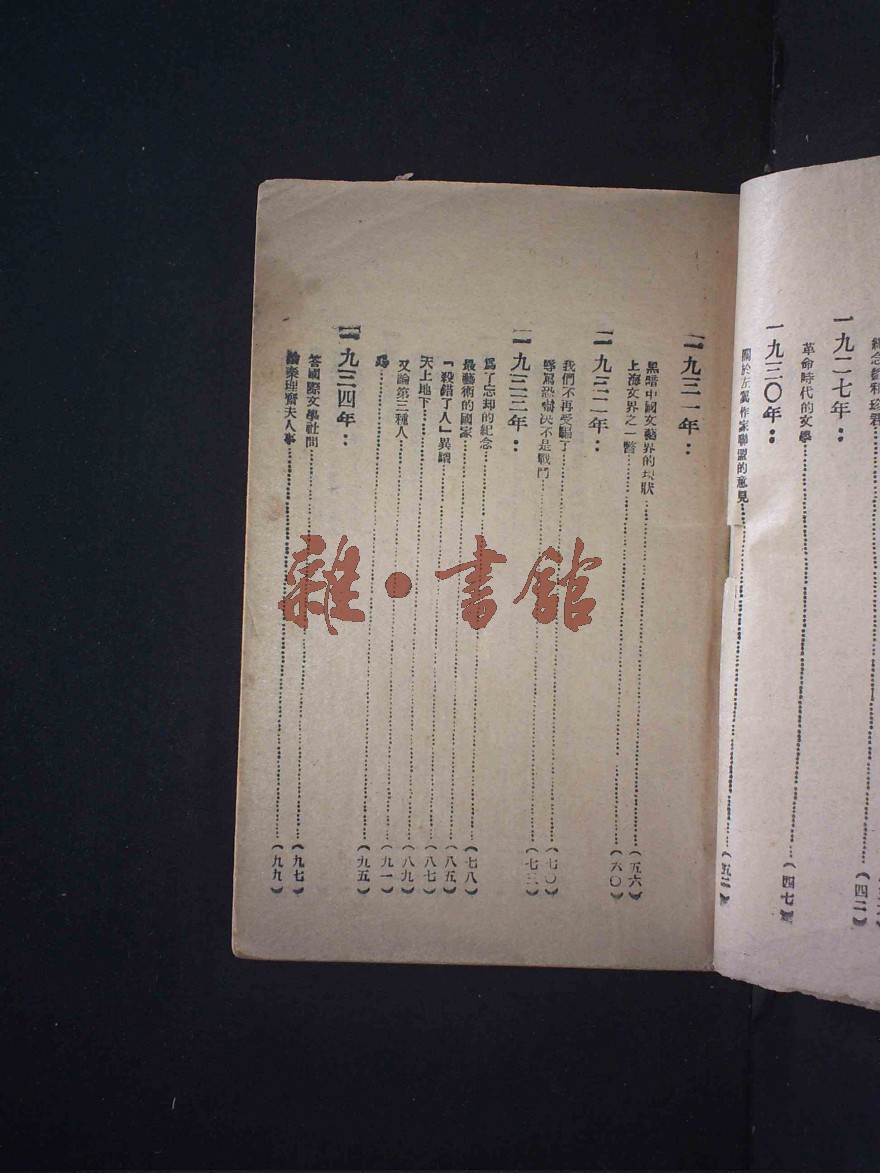 紀念劉和珍君
一九二七年：
革命時代的文學……(四七)
(四二)
一九三〇年：
關於左翼作家聯盟的意見……(五二)
一九三一年：
黑暗中國文藝界的現狀……(五六)
上海文界之一瞥……(六〇)
一九三二年：
我們不再受騙了……(七〇)
辱罵恐嚇決不是戰鬥……(七三)
一九三三年：
爲了忘却的紀念……(七八)
最藝術的國家……(八五)
「殺錯了人」異議……(八七)
天上地下……(八九)
又論第三種人……(九一)
……(九五)
一九三四年：
答國際文學社問……(九七)
論秦理齋夫人事……(九九)
雜·書館